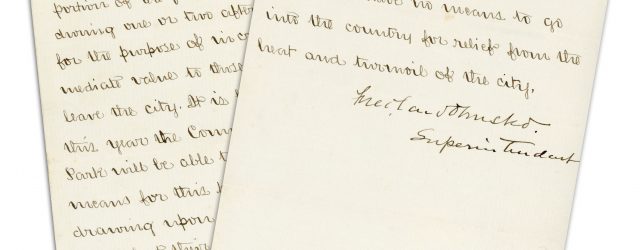 portion of the
one or two after
for the purpose of
mediate value to those
leave the city. It is
this year the Com
Park will be able t
means for this
drawing upon
have no means to go
into the country for relief from the
heat and turmoil of the city.
Fred. Law Olmsted.
Superintendent